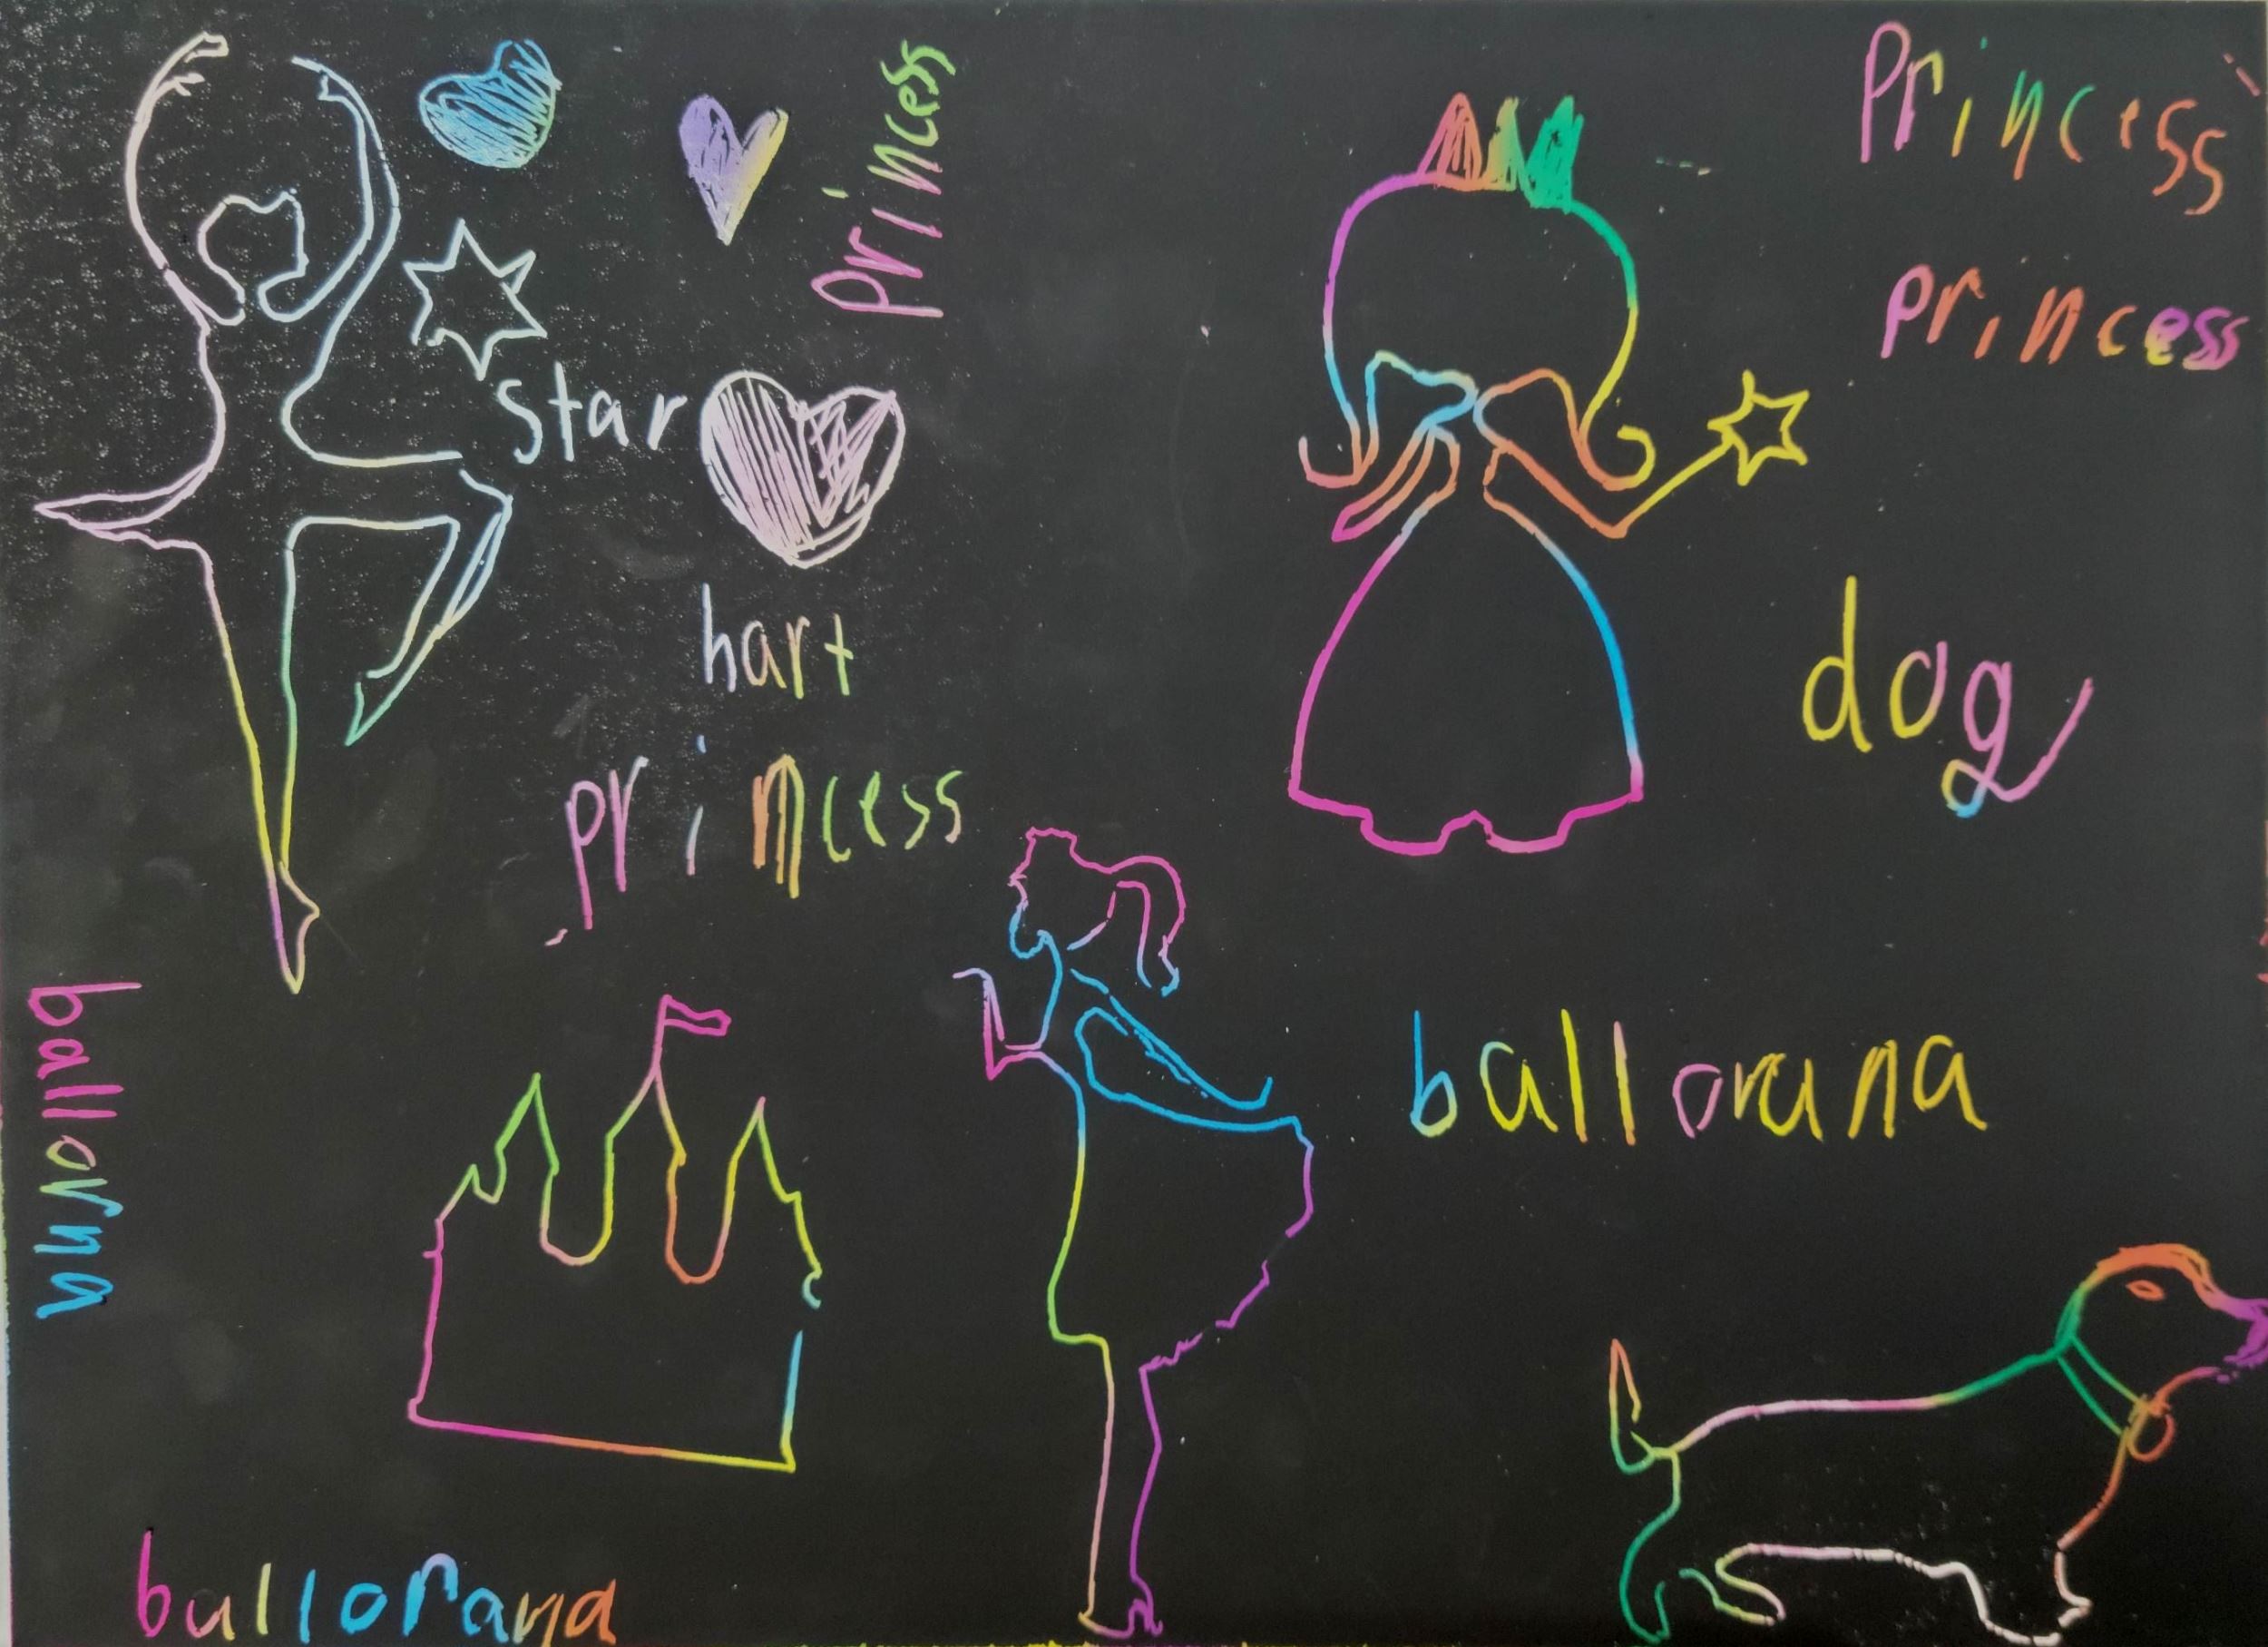 Princess
princess
princess
star
hart
dog
princess
ballorna
ballorana
ballorana